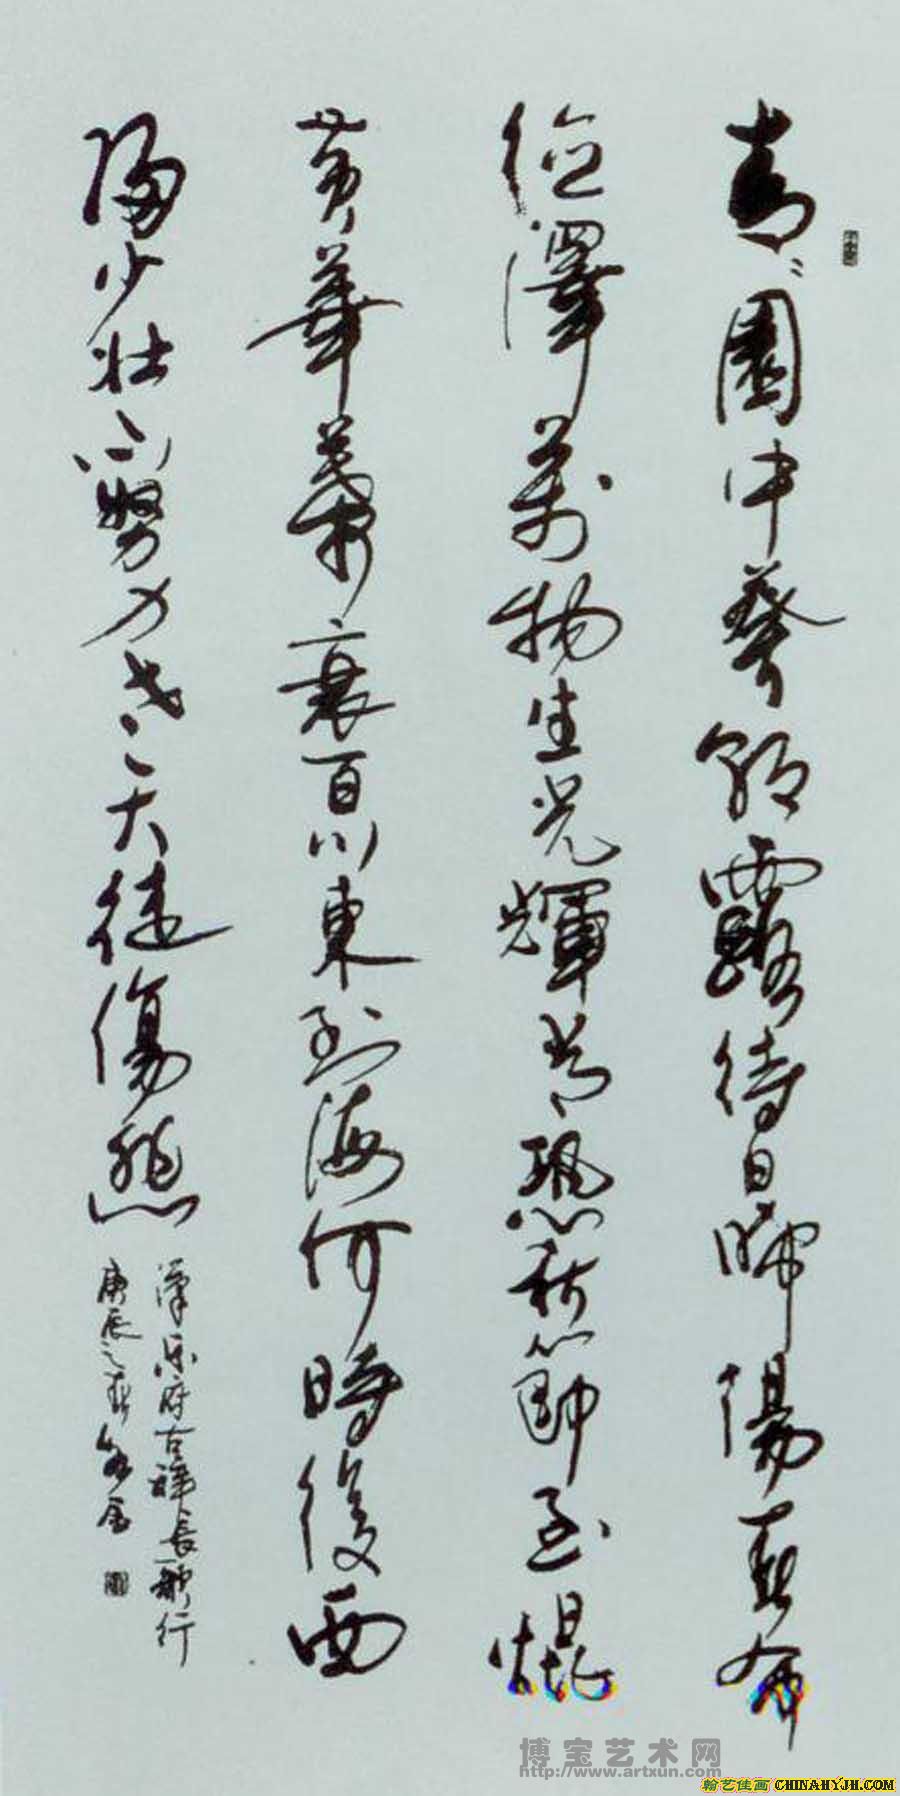 青〻園中葵朝露待日晞陽春布
德澤萬物生光輝常恐秋節至焜
黄華葉衰百川東到海何時復西
歸少壯不努力老大徒傷悲
漢乐府古辭長歌行
庚辰之
博宝艺术网
http://www.artxun.com
翰艺佳画 CHINAHYJH.COM